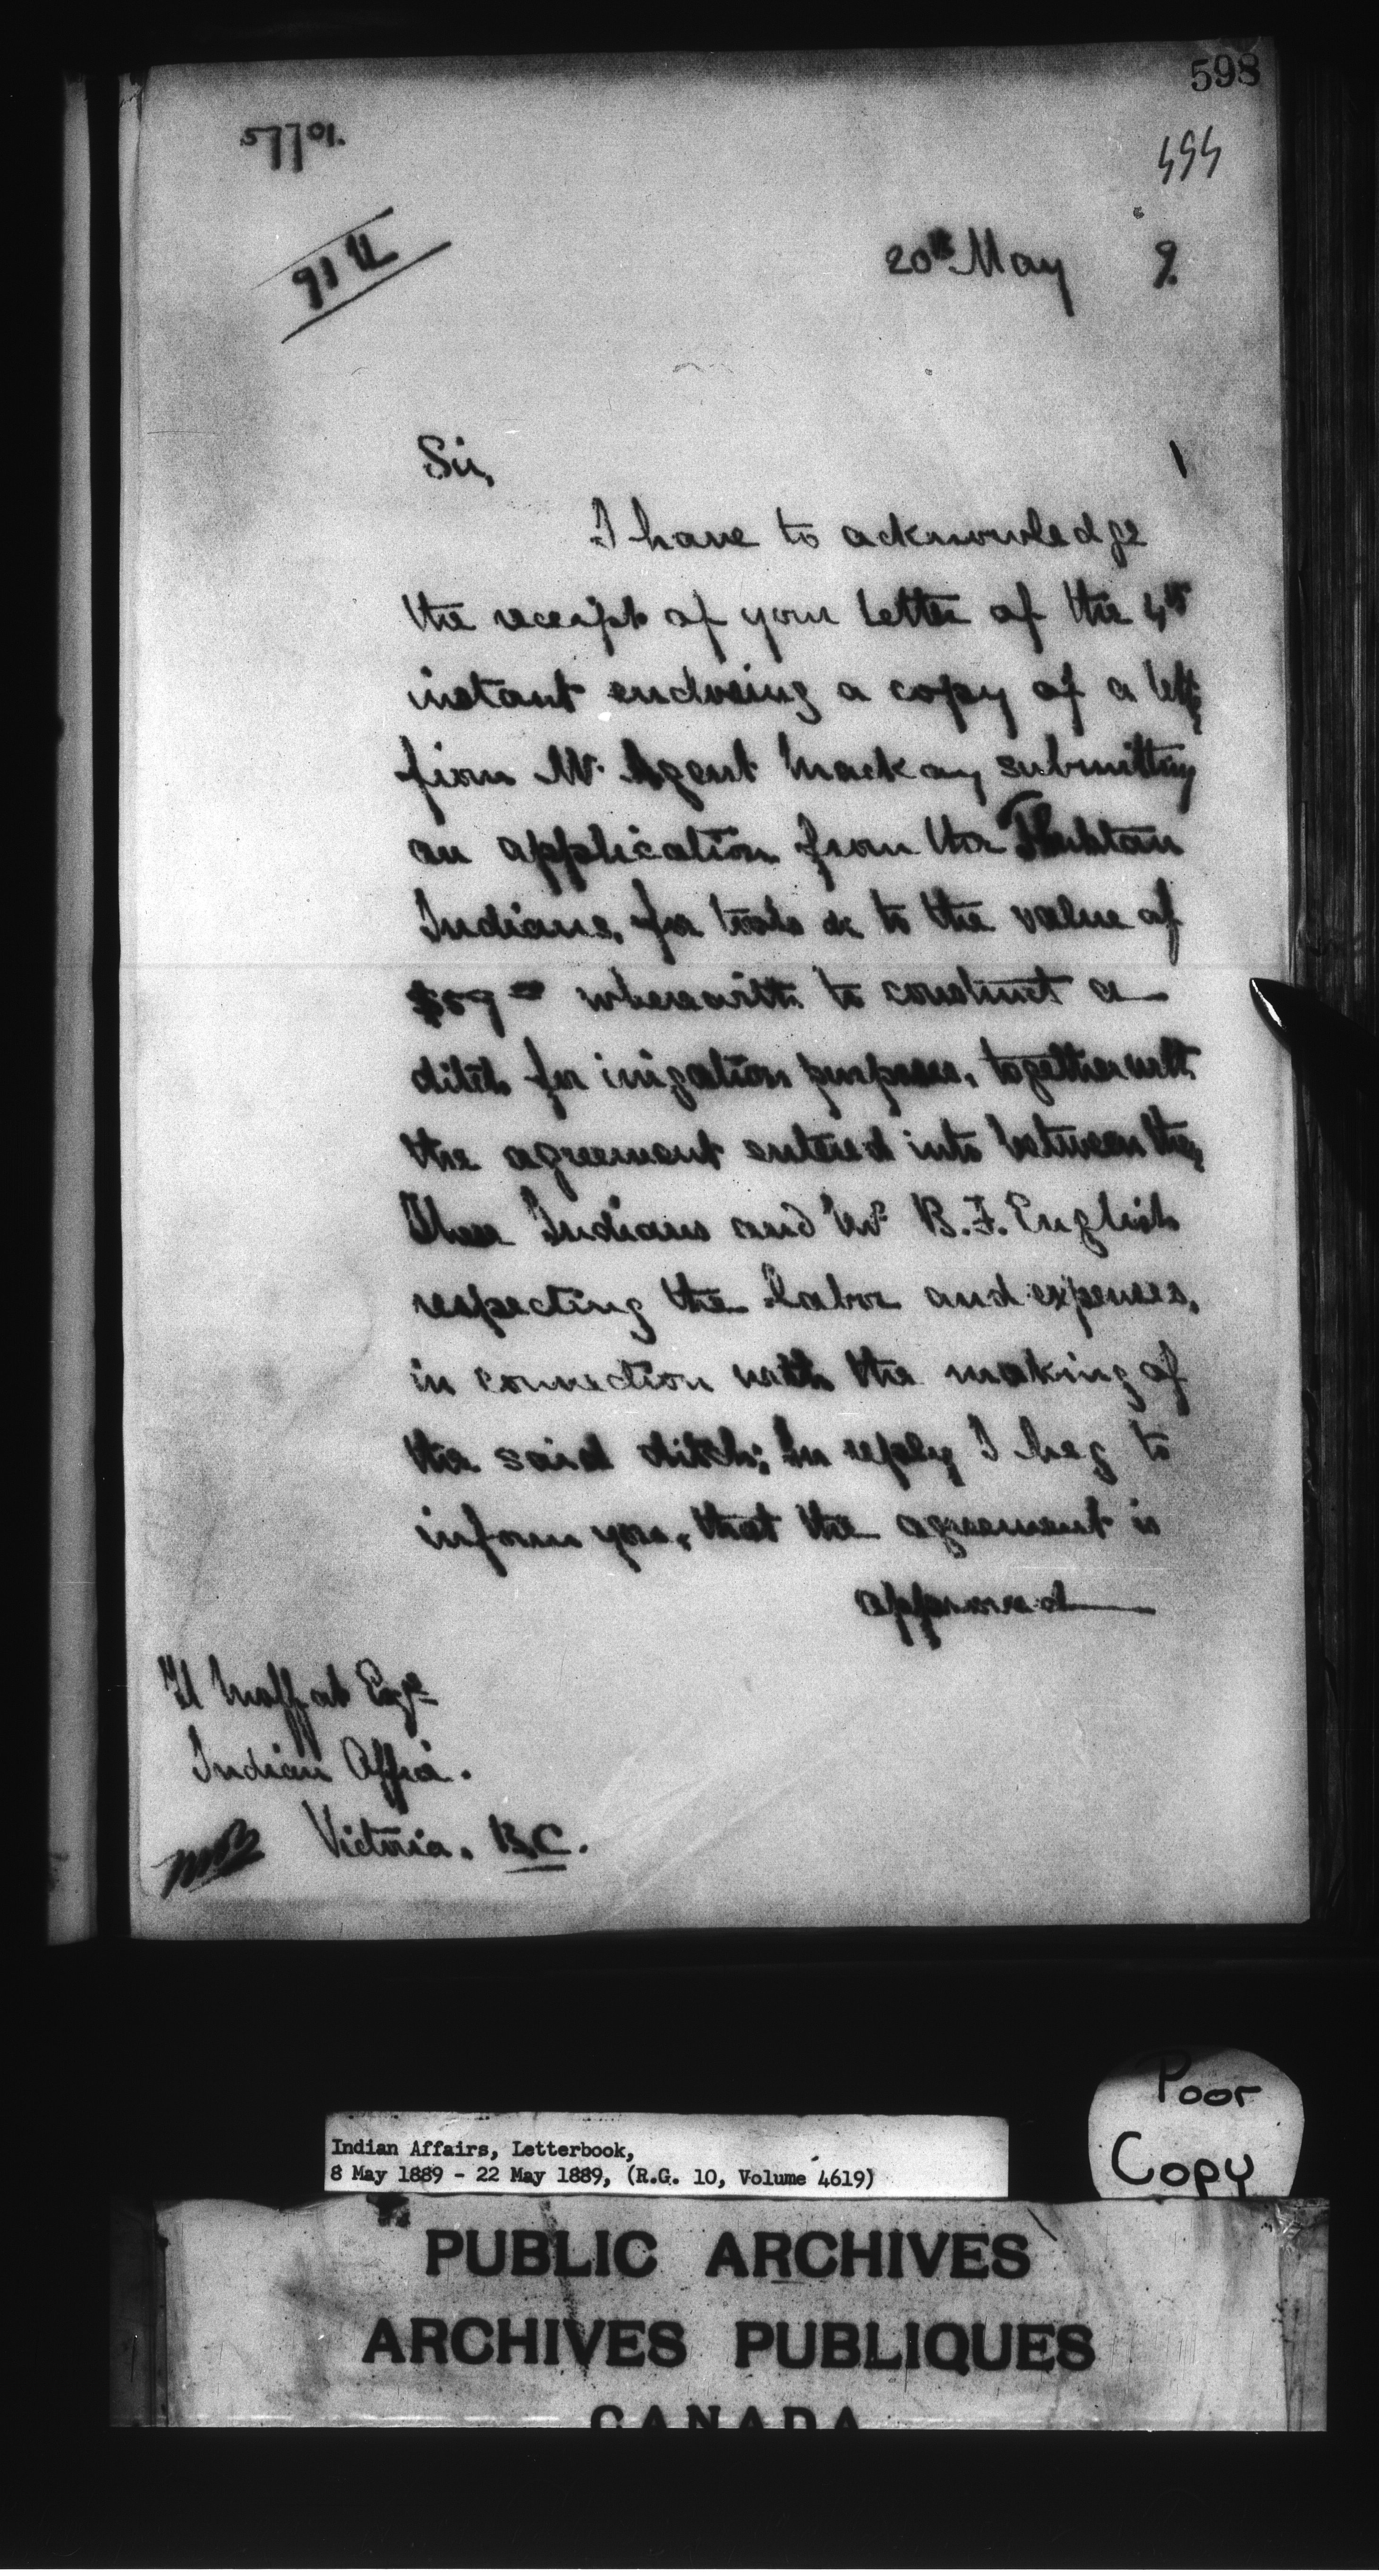 598
57701.
494
91 11
20th May 9.
Sir,
I have to acknowledge
the receipt of your letter of the 4th
instant enclosing a copy of a lettr
from Mr. Agent Mackay submitting
an application from the
Indians, for tools &c to the value of
$59 00 wherewith to construct a
ditch for irrigation purposes, together with
the agreement entered into between the
these Indians and Mr B.F. English
respecting the labor and expenses,
in connection with the making of
the said ditch; In reply I beg to
inform you, that the agreement is
approved
H Moffat Esqre
Indian Office.
Victoria. B.C.
Poor
Copy
Indian Affairs, Letterbook,
8 May 1889 - 22 May 1889, (R.G. 10, Volume 4619)
PUBLIC ARCHIVES
ARCHIVES PUBLIQUES
CANADA